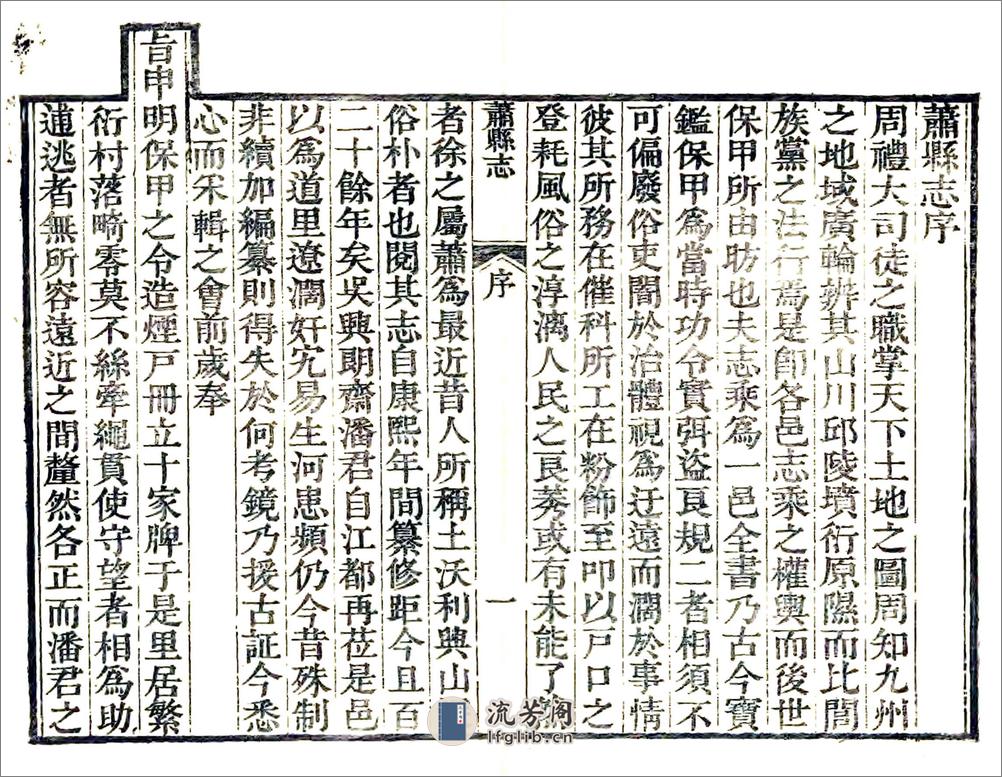 蕭縣志序
周禮大司徒之職掌天下土地之圖周知九州
之地域廣輪辨其山川邱陵墳衍原隰而比閭
族黨之法行焉是卽各邑志乘之權輿而後世
保甲所由昉也夫志乘為一邑全書乃古今寶
鑑保甲為當時功令實弭盜良規二者相須不
可偏廢俗吏闇於治體視為迂遠而濶於事情
彼其所務在催科所工在粉飾至叩以戶口之
登耗風俗之淳漓人民之良莠或有未能了
蕭縣志
序
一
者徐之屬蕭為最近昔人所稱土沃利興山
俗朴者也閱其志自康熙年間纂修距今且百
二十餘年矣吳興朗齋潘君自江都再莅是邑
以為道里遼濶奸宄易生河患頻仍今昔殊制
非續加編纂則得失於何考鏡乃援古証今悉
心而采輯之會前歲奉
旨申明保甲之令造煙戸冊立十家牌于是里居繁
衍村落畸零莫不絲牽繩貫使守望者相為助
逋逃者無所容遠近之間釐然各正而潘君之
流芳閣
lfglib.cn